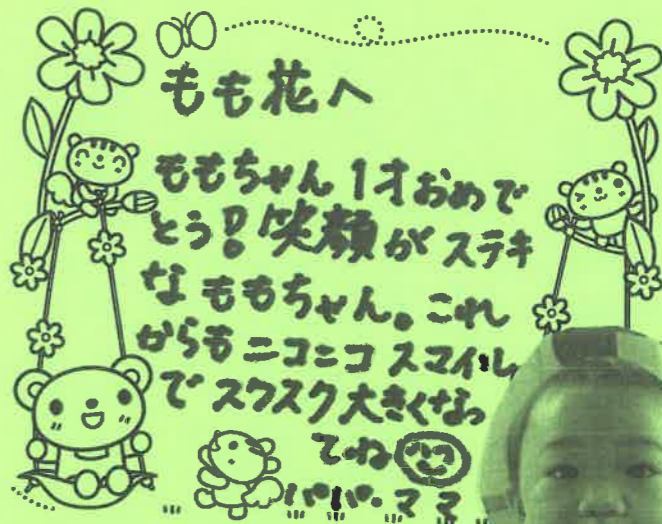 もも花へ
ももちゃん1才おめで
とう!笑顔がステキ
なももちゃん。これ
からもニコニコスマイル
でスクスク大きくなっ
てね
パパ・ママ